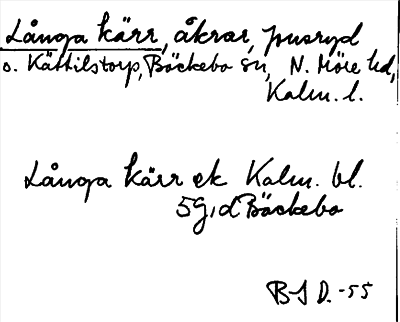 Långa kärr, åkrar, Jusryd
o. Kättilstorp, Bäckebo sn, N. Möre hd,
Kalm. l.
Långa kärr ek Kalm. bl.
5g, d Bäckebo
BJ D. -55